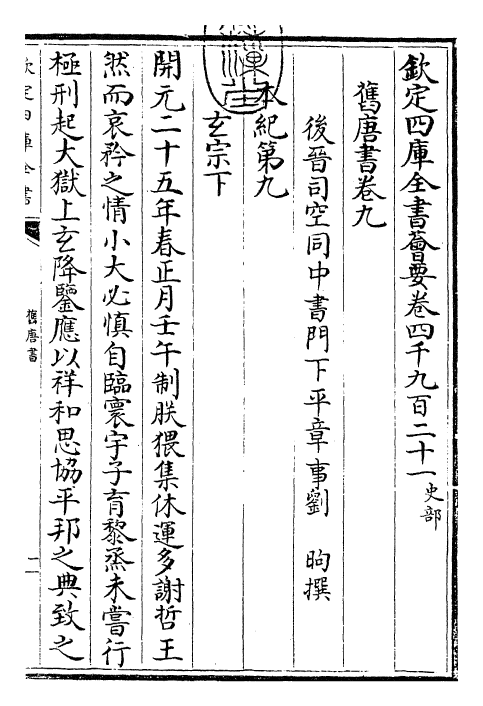 欽定四庫全書薈要卷四千九百二十一史部
舊唐書卷九
後晉司空同中書門下平章事劉昫撰
本紀第九
玄宗下
開元二十五年春正月壬午制朕猥集休運多謝哲王
然而哀矜之情小大必慎自臨寰宇子育黎烝未嘗行
極刑起大獄上玄降鑒應以祥和思協平邦之典致之
欽定四庫全書
舊唐書
一